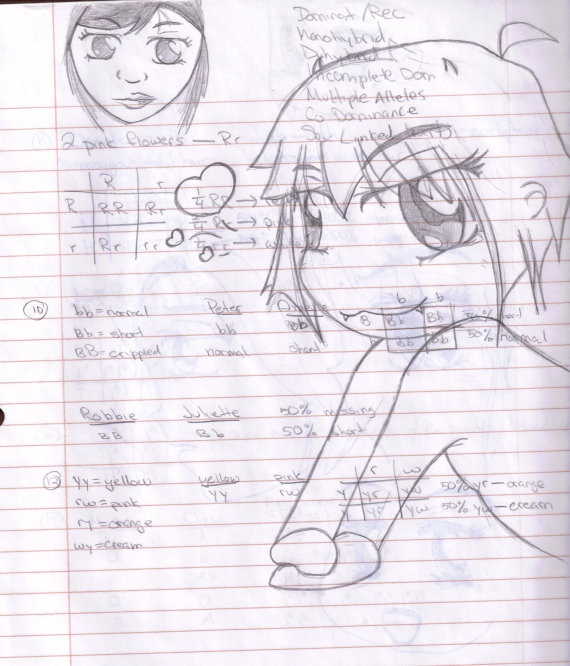 Dominant/Rec
Monohybrid
Dihybrid
Incomplete Dom
Multiple Alleles
Co Dominance
Sex Linked
2 pink flowers — Rr
R r
R RR Rr 1/4 RR →
r Rr rr 2/4 Rr →
1/4 rr →
10 bb = normal Peter b b
Bb = short bb Bb B Bb Bb 50% short
BB = crippled normal short bb bb 50% normal
Robbie Juliette 50% missing
BB Bb 50% short
YY = yellow yellow pink r w
rw = pink YY rw Y Yr Yw 50% yr — orange
rY = orange Y Yr Yw 50% yw — cream
wy = cream